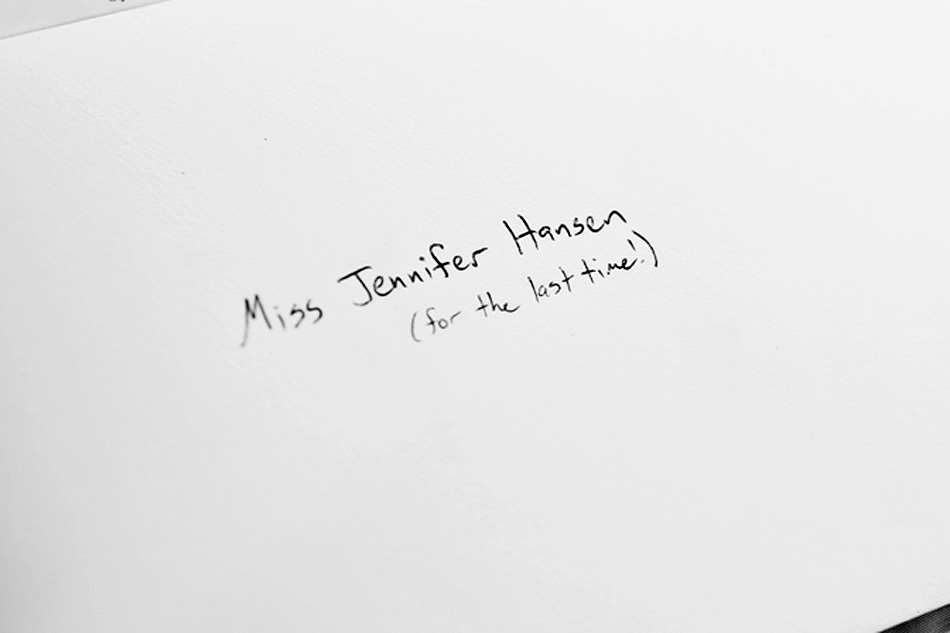 Miss Jennifer Hansen
(for the last time!)